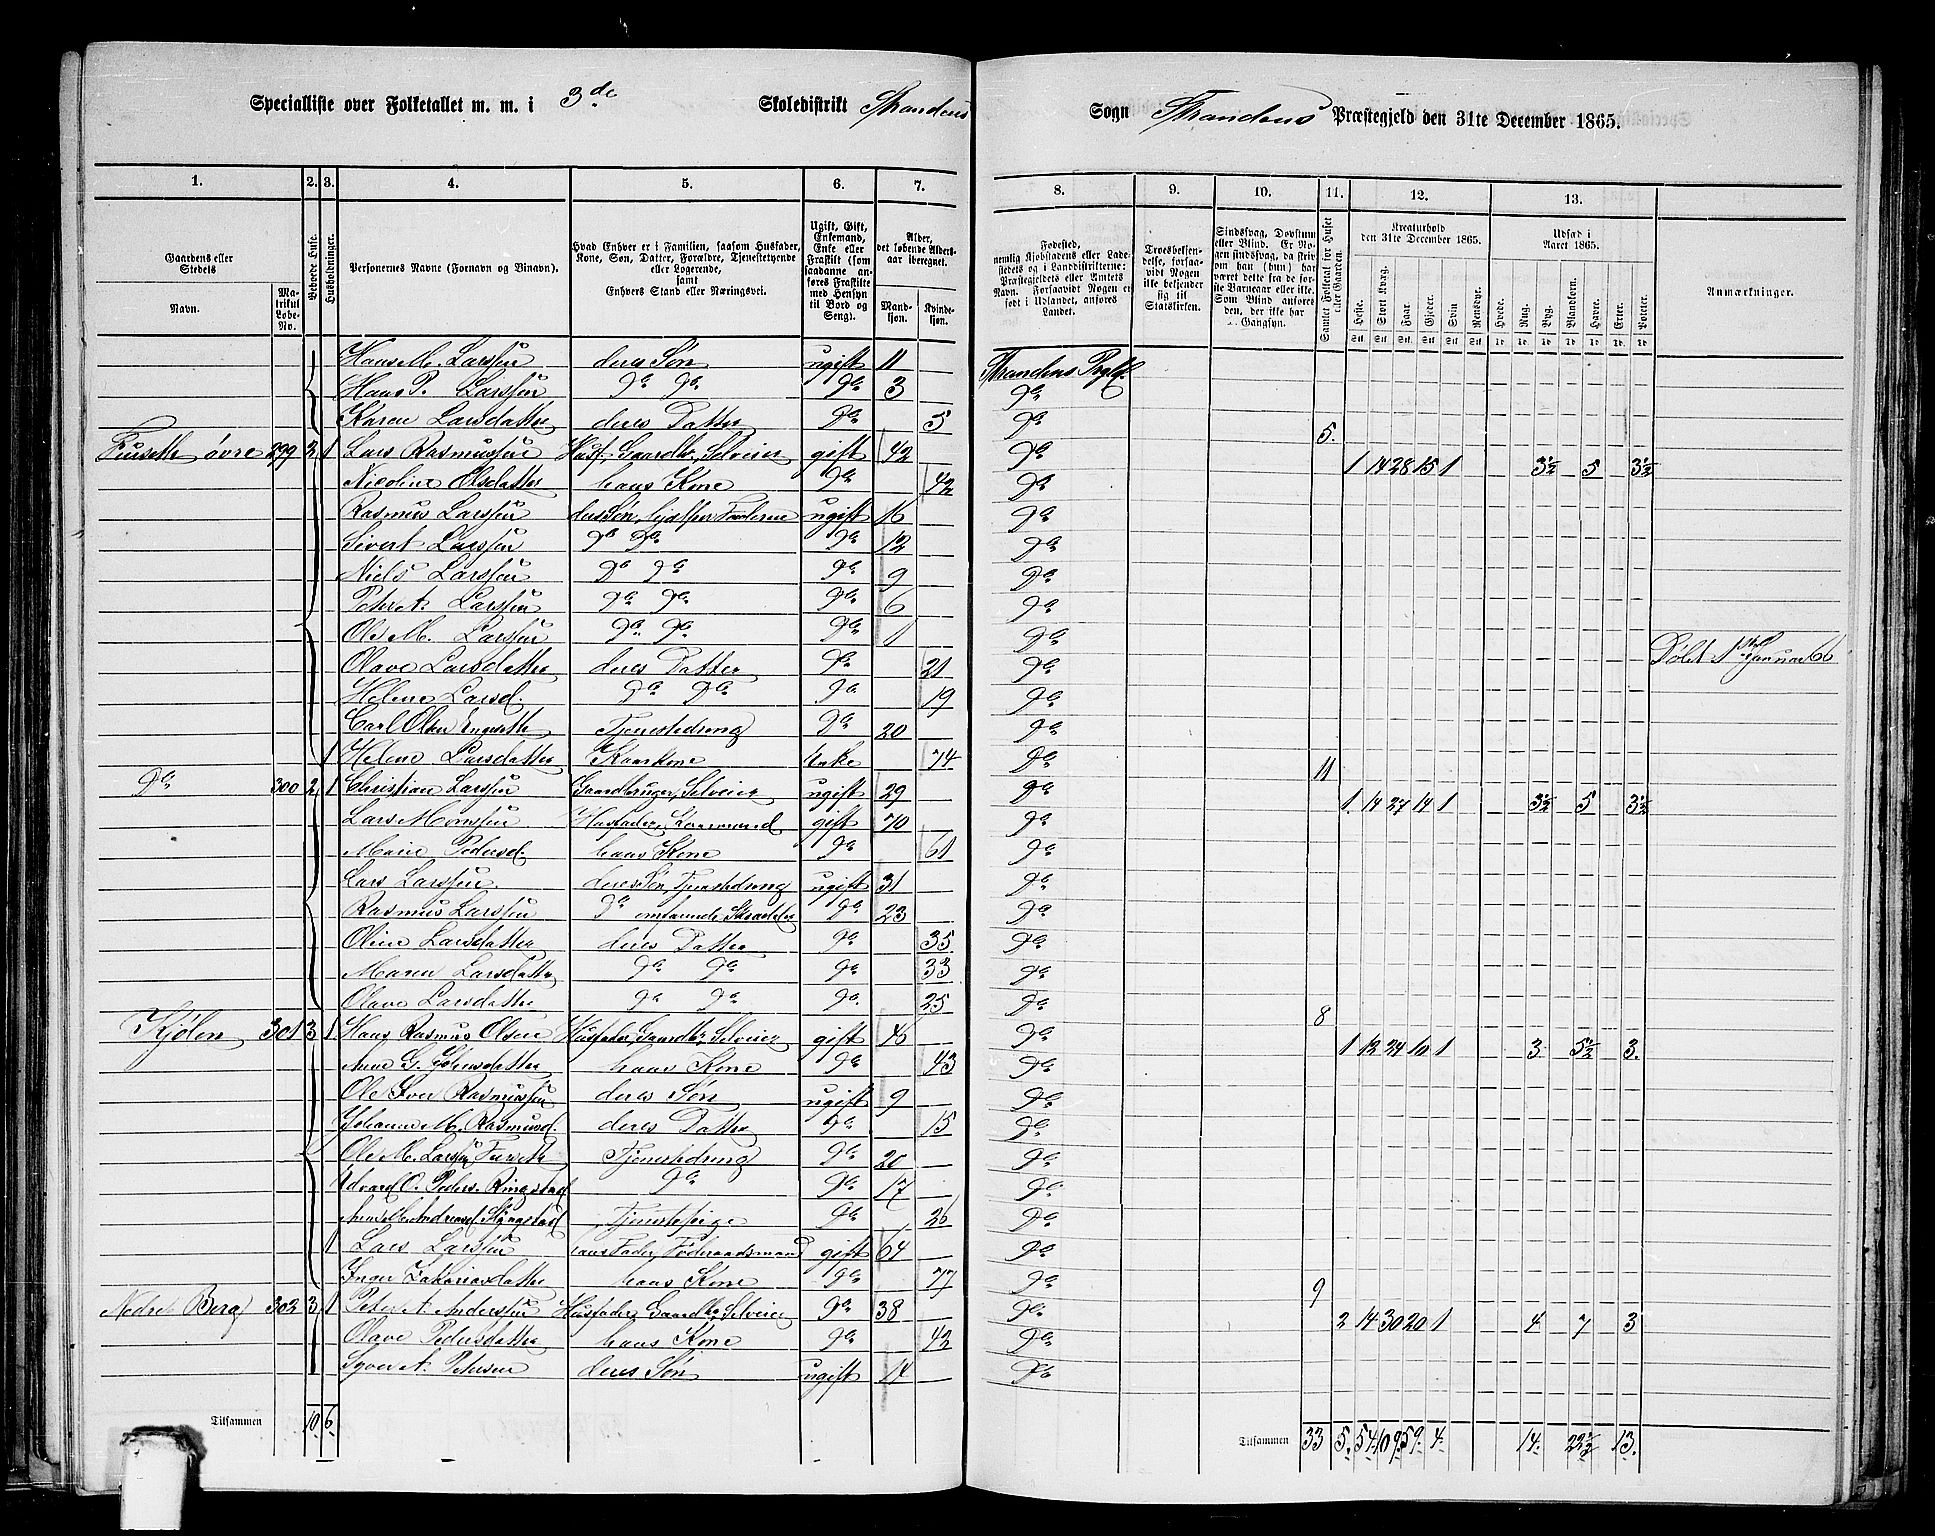 Specialliste over Folketallet m. m. i 3de Skoledistrikt Strandens
Sogn Strandens Præstegjeld den 31te December 1865.
1. 2. 3. 4. 5. 6. 7. 8. 9. 10. 11. 12. 13.
Gaardens eller Stedets
Navn.
Matrikul Løbe-No.
Beboede Huse.
Husholdninger.
Personernes Navne (Fornavn og Binavn).
Hvad Enhver er i Familien, saasom Husfader, Kone, Søn, Datter, Forældre, Tjenestetyende eller Logerende, samt Enhvers Stand eller Næringsvei.
Ugift, Gift, Enkemand, Enke eller Fraskilt (som saadanne anføres Fraskilte med Hensyn til Bord og Seng).
Alder, det løbende Aldersaar iberegnet.
Mandkjøn.
Kvindekjøn.
Fødested, nemlig Kjøbstadens eller Ladestedets og i Landdistrikterne: Præstegjeldets eller Amtets Navn. Forsaavidt Nogen er født i Udlandet, anføres Landet.
Troesbekjendelse, forsaavidt Nogen ikke bekjender sig til Statskirken.
Sindssvag, Døvstum eller Blind. Er Nogen sindssvag, da skrives om han (hun) har været dette fra de første Barneaar eller ikke. Som Blind anføres den, der ikke har Gangsyn.
Samlet Folketal for Huset eller Gaarden.
Kreaturhold den 31te December 1865.
Heste. Stort Kvæg. Faar. Gjeder. Svin. Rensdyr.
Udsæd i Aaret 1865.
Hvede. Rug. Byg. Blandkorn. Havre. Erter. Poteter.
Anmærkninger.
Hans M. Larssen deres Søn ugift 11 Strandens Pgld.
Hans P. Larssen Do Do Do 3 Do
Karen Larsdatter deres Datter Do 5 Do 5.
Furseth øvre 299 2 1 Lars Rasmussen Husf, Gaardbr, Selveier gift 42 Do 1 14 28 15 1 3½ 5 3½
Nicoline Olsdatter hans Kone Do 42 Do
Rasmus Larssen deres Søn, hjælper Forældrene ugift 16 Do
Sivert Larssen Do Do Do 12 Do
Niels Larssen Do Do Do 9 Do
Peter A. Larssen Do Do Do 6 Do
Ole M. Larssen Do Do Do 1 Do
Olave Larsdatter deres Datter Do 21 Do Døbt 1ste Januar 66
Helene Larsd. Do Do Do 19 Do
Carl Olsen Tjenestedreng Do 20 Do
1 Helene Larsdatter Kaarkone Enke 74 Do 11
Do 300 2 1 Christian Larssen Gaardbruger, Selveier ugift 29 Do 1 14 27 14 1 3½ 5 3½
Lars Monssen Husfader, Kaarmand gift 70 Do
Marie Pedersd. hans Kone Do 61 Do
Lars Larssen deres Søn, Tjenestedreng ugift 31 Do
Rasmus Larssen Do omfarende Skrædder Do 23 Do
Oline Larsdatter deres Datter Do 35 Do
Maren Larsdatter Do Do Do 33 Do
Olave Larsdatter Do Do Do 25 Do 8
Kjølen 301 3 1 Hans Rasmus Olsen Husfader, Gaardbr, Selveier gift 46 Do 1 12 24 10 1 3 5½ 3.
Ane G. Johnsdatter hans Kone Do 43 Do
Ole Iver Rasmussen deres Søn ugift 9 Do
Johanne M. Rasmusd. deres Datter Do 15 Do
Ole M. Larssen Furseth Tjenestedreng Do 20 Do
Edvard O. Peders. Ringstad Do Do 17 Do
Ane M. Andreasd. Tjenestepige Do 26 Do
1 Lars Larssen hans Fader, Føderaadsmand gift 64 Do
Inger Zakariasdatter hans Kone Do 77 Do 9
Nedre Berg 302 3 1 Peter A. Anderssen Husfader, Gaardbr, Selveier Do 38 Do 2 14 30 20 1 4 7 3
Olave Pedersdatter hans Kone Do 42 Do
Syver A. Petersen deres Søn ugift 14 Do
Tilsammen 10 6
Tilsammen 33 5. 54 109. 59. 4. 14. 22½ 13.